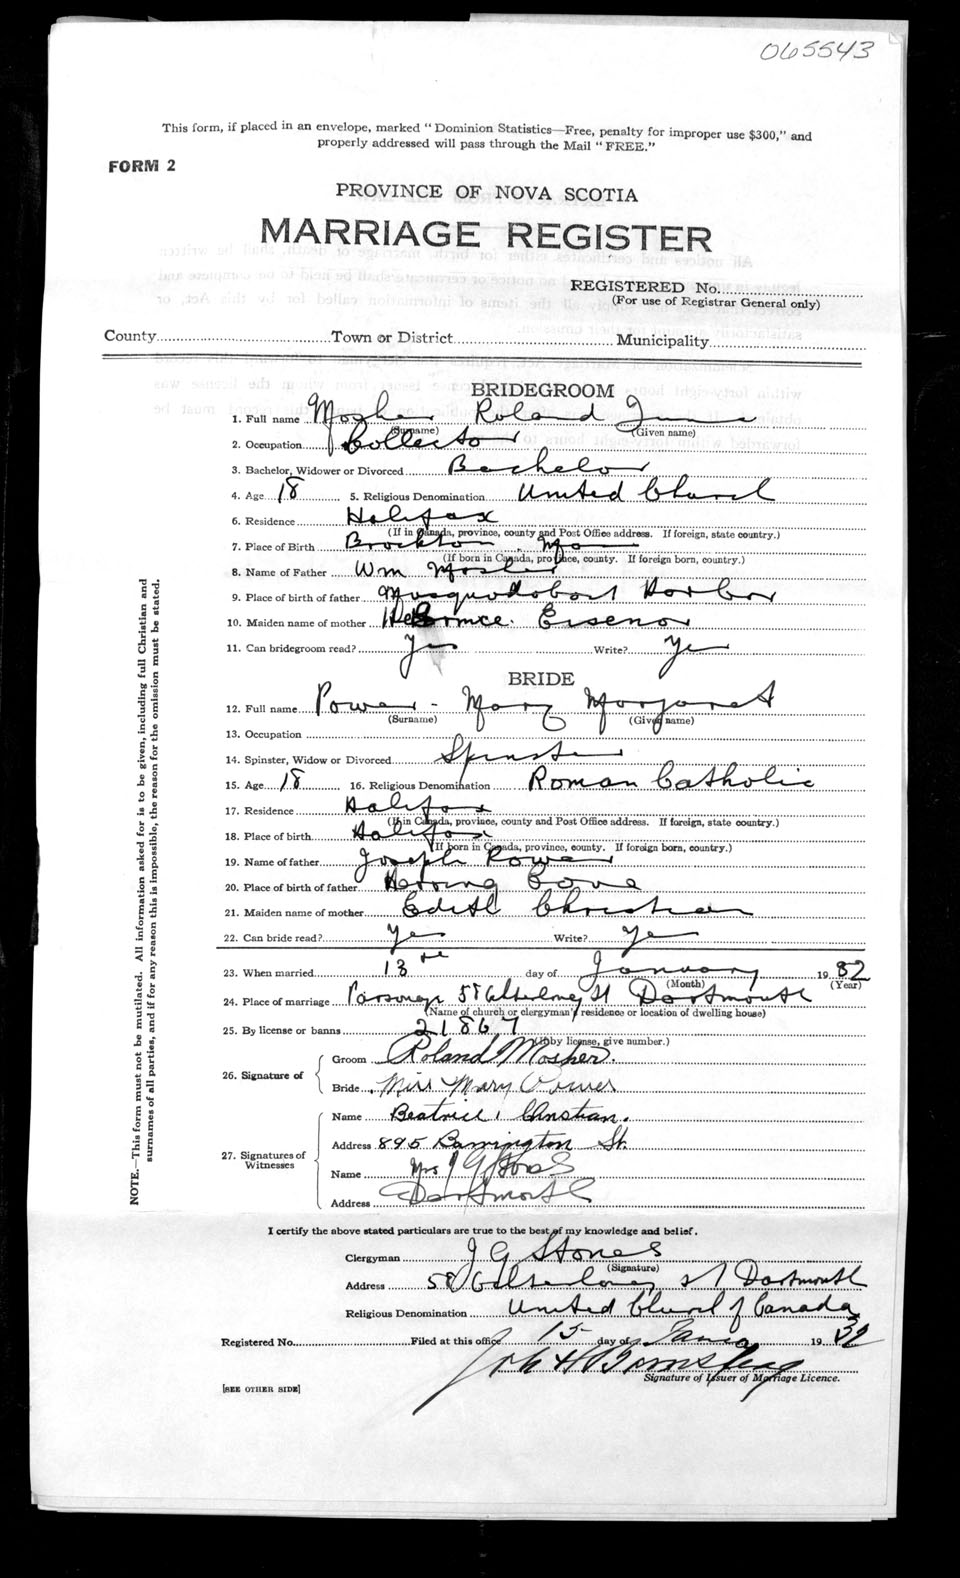 065543
This form, if placed in an envelope, marked "Dominion Statistics—Free, penalty for improper use $300," and
properly addressed will pass through the Mail "FREE."
FORM 2
PROVINCE OF NOVA SCOTIA
MARRIAGE REGISTER
REGISTERED No.
(For use of Registrar General only)
County Town or District Municipality
BRIDEGROOM
1. Full name Mosher Roland
(Surname) (Given name)
2. Occupation Collector
3. Bachelor, Widower or Divorced Bachelor
4. Age 18 5. Religious Denomination United Church
6. Residence Halifax
(If in Canada, province, county and Post Office address. If foreign, state country.)
7. Place of Birth Brockton
(If born in Canada, province, county. If foreign born, country.)
8. Name of Father Wm Mosher
9. Place of birth of father Musquodoboit Harbor
10. Maiden name of mother Eisenor
11. Can bridegroom read? Yes Write? Yes
BRIDE
12. Full name Power - Mary Margaret
(Surname) (Given name)
13. Occupation
14. Spinster, Widow or Divorced Spinster
15. Age 18 16. Religious Denomination Roman Catholic
17. Residence Halifax
(If in Canada, province, county and Post Office address. If foreign, state country.)
18. Place of birth Halifax
(If born in Canada, province, county. If foreign born, country.)
19. Name of father Joseph Power
20. Place of birth of father Herring Cove
21. Maiden name of mother Edith Christian
22. Can bride read? Yes Write? Yes
23. When married 13 day of January 1932
(Month) (Year)
24. Place of marriage Parsonage 58 St Dartmouth
(Name of church or clergyman's residence or location of dwelling house)
25. By license or banns 21867
(If by license, give number.)
26. Signature of
Groom Roland Mosher.
Bride Miss Mary Power
27. Signatures of Witnesses
Name Beatrice Christian.
Address 895 Barrington St.
Name Mrs J G Stones
Address Dartmouth
I certify the above stated particulars are true to the best of my knowledge and belief.
Clergyman J G Stones
(Signature)
Address 58 St Dartmouth
Religious Denomination United Church of Canada
Registered No. Filed at this office 15 day of 1932
Signature of Issuer of Marriage Licence.
[SEE OTHER SIDE]
NOTE.—This form must not be mutilated. All information asked for is to be given, including full Christian and
surnames of all parties, and if for any reason this is impossible, the reason for the omission must be stated.